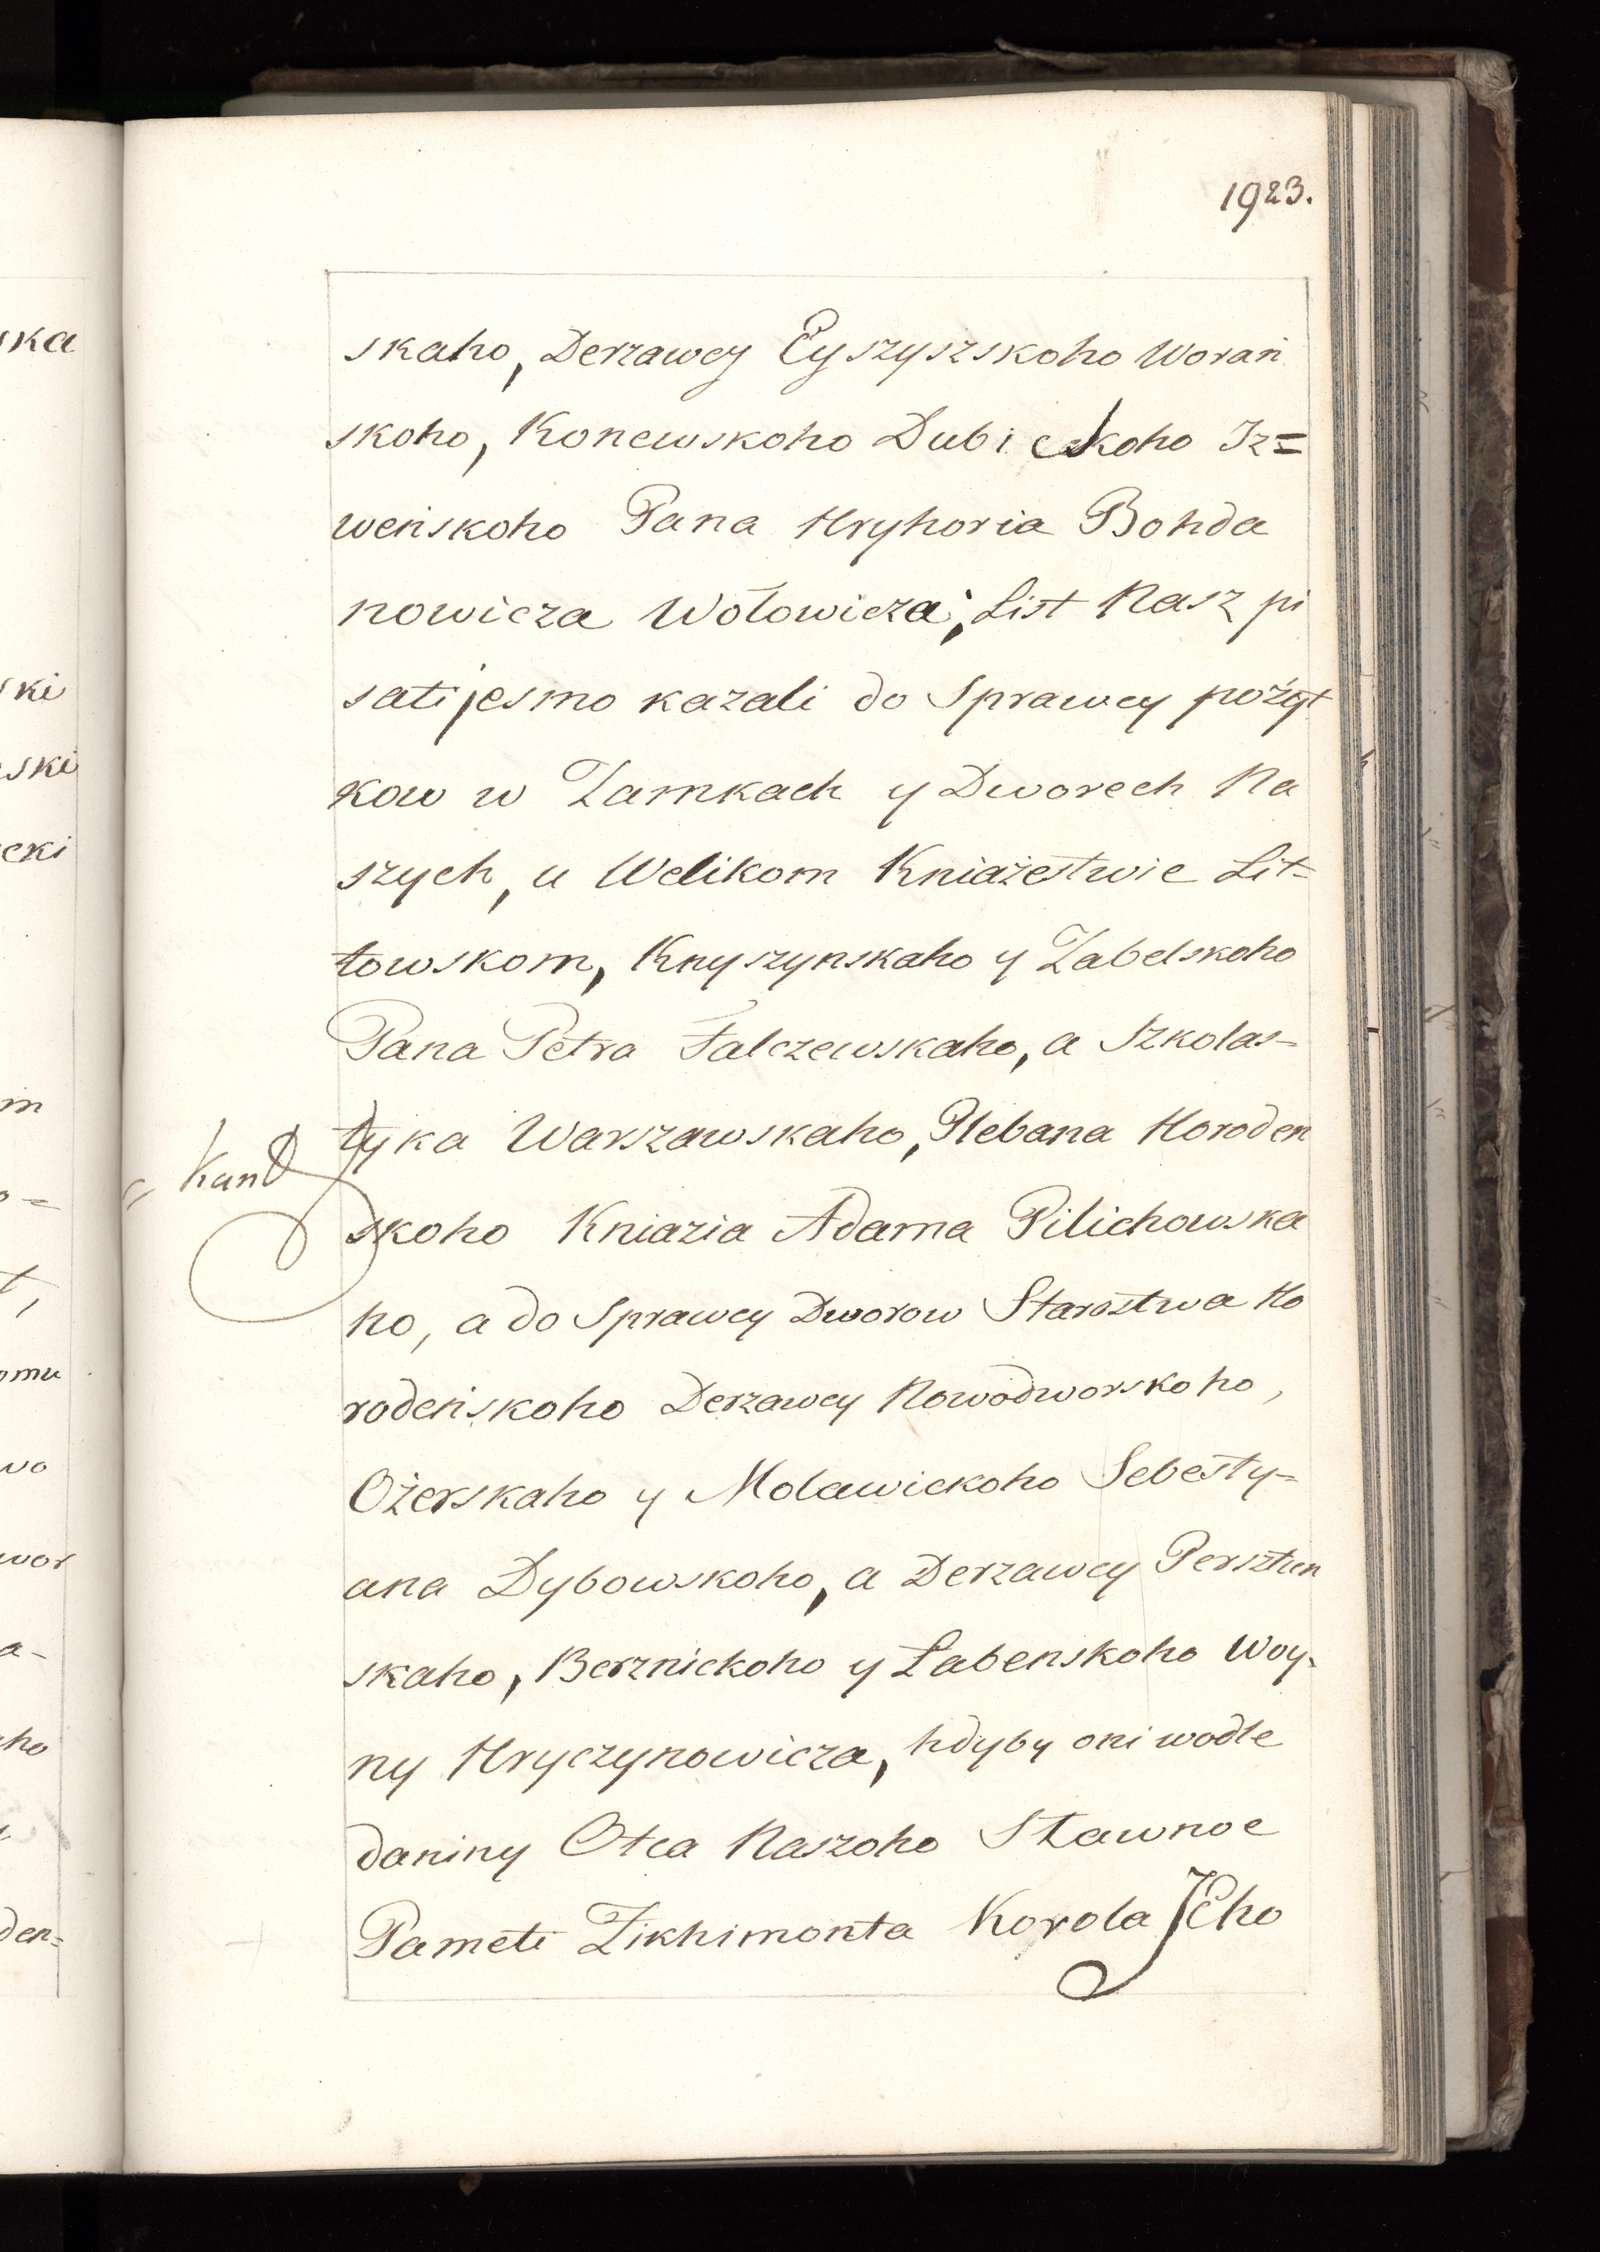 1923.
skaho, Derzawcy Eyszyszskoho Woran
skoho, Konewskoho Dubickoho Iz=
weńskoho Pana Hryhoria Bohda
nowicza Wołowicza; List Nasz pi
sati jesmo kazali do Sprawcy pożyt
kow w Zamkach y Dworech Na
szych, u Welikom Kniażestwie Lit=
towskom, Knyszynskaho y Zabelskoho
Pana Petra Falczewskaho, a Szkolas-
tyka Warszawskaho, Plebana Horoden
skoho Kniazia Adama Pilichowska
ho, a do Sprawcy Dworow Starostwa Ho
rodeńskoho Derzawcy Nowodworskoho,
Ożerskaho y Molawickoho Sebesty-
ana Dybowskoho, a Derzawcy Persztun
skaho, Berznickoho y Łabenskoho Woy-
ny Hryczynowicza, hdyby oni wodle
daniny Otca Naszoho Sławnoe
Pameti Zikhimonta Korola Jeho
ska
ski
ski
cki
m
o=
t,
omu
wo
wor
a-
ho
den=